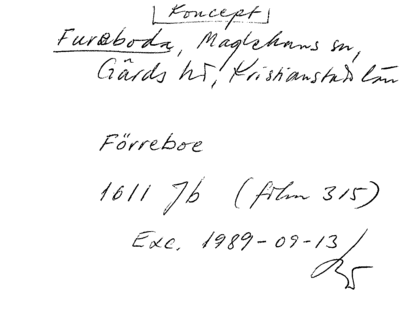 Koncept
Fureboda, Maglehems sn,
Gärds hd, Kristianstads län
Förreboe
1611 Jb (film 315)
Exc. 1989-09-13